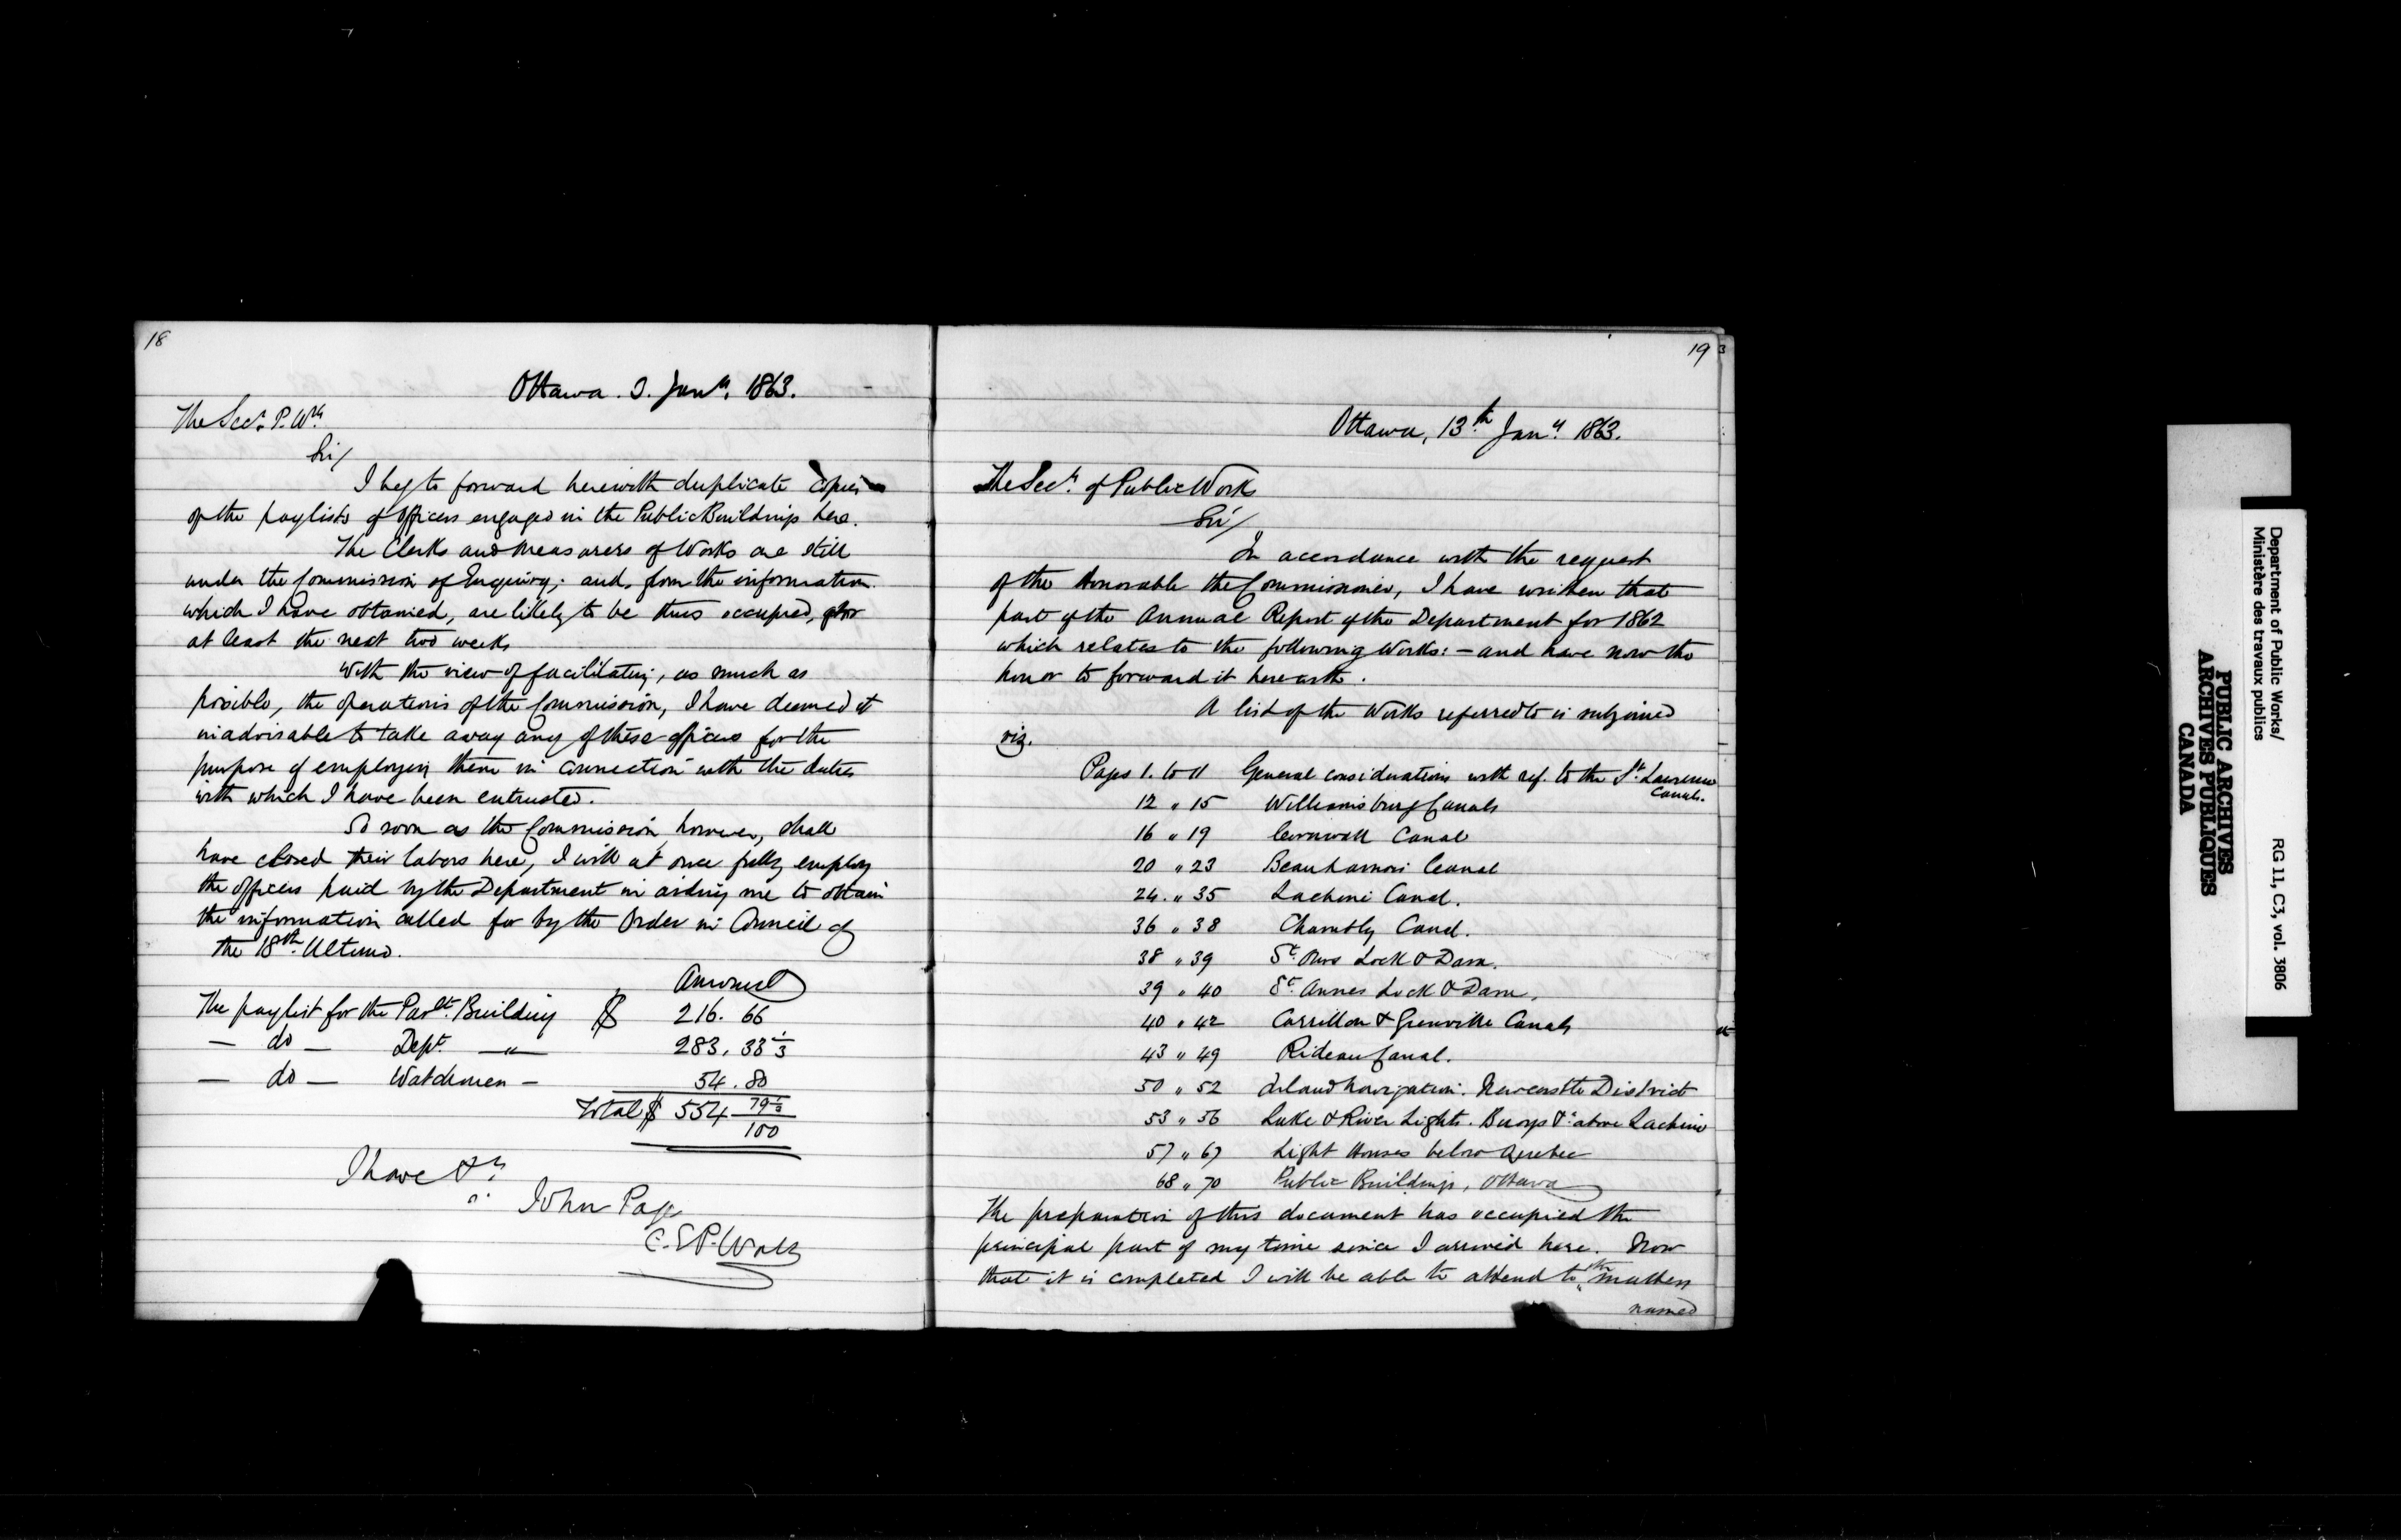 18
Ottawa. 3. Jany. 1863.
The Secy. P. Wks
Sir/
I beg to forward herewith duplicate copies
of the paylists of officers engaged in the Public Buildings here.
The Clerks and Measurers of Works are still
under the Commission of Enquiry; and, from the information
which I have obtained, are likely to be thus occupied, for
at least the next two weeks
With the view of facilitating, as much as
possible, the operations of the Commission, I have deemed it
inadvisable to take away any of these officers for the
purpose of employing them in connection with the duties
with which I have been entrusted.
So soon as the Commission, however, shall
have closed their labors here, I will at once fully employ
the officers paid by the Department in aiding me to obtain
the information called for by the Order in Council of
the 18th Ultimo.
Amount
The paylist for the Parlt. Building $ 216. 66
— do — Dept. — " — 283. 33 1/3
— do — Watchmen — 54. 80
Total $ 554 79 1/3 / 100
I have &c
John Page
C. E. P. Works
19
3
Ottawa, 13th Jany. 1863.
The Secy. of Public Works
Sir/
In accordance with the request
of the Honorable the Commissioner, I have written that
part of the Annual Report of the Department for 1862
which relates to the following Works: — and have now the
honor to forward it herewith.
A list of the Works referred to is subjoined
viz.
Pages 1. to 11 General considerations with ref. to the St. Lawrence
Canals.
12 " 15 Williamsburg Canals
16 " 19 Cornwall Canal
20 " 23 Beauharnois Canal
24. " 35 Lachine Canal.
36 " 38 Chambly Canal.
38 " 39 St. Ours Lock & Dam.
39 " 40 St. Annes Lock & Dam.
40 " 42 Carrillon & Grenville Canals
43 " 49 Rideau Canal.
50 " 52 Inland Navigation. Newcastle District
53 " 56 Lake & River Lights. Buoys &c above Lachine
57 " 67 Light Houses below Quebec
68 " 70 Public Buildings, Ottawa
The preparation of this document has occupied the
principal part of my time since I arrived here. Now
that it is completed I will be able to attend to the matters
named
Department of Public Works/
Ministère des travaux publics
RG 11, C3, vol. 3806
PUBLIC ARCHIVES
ARCHIVES PUBLIQUES
CANADA